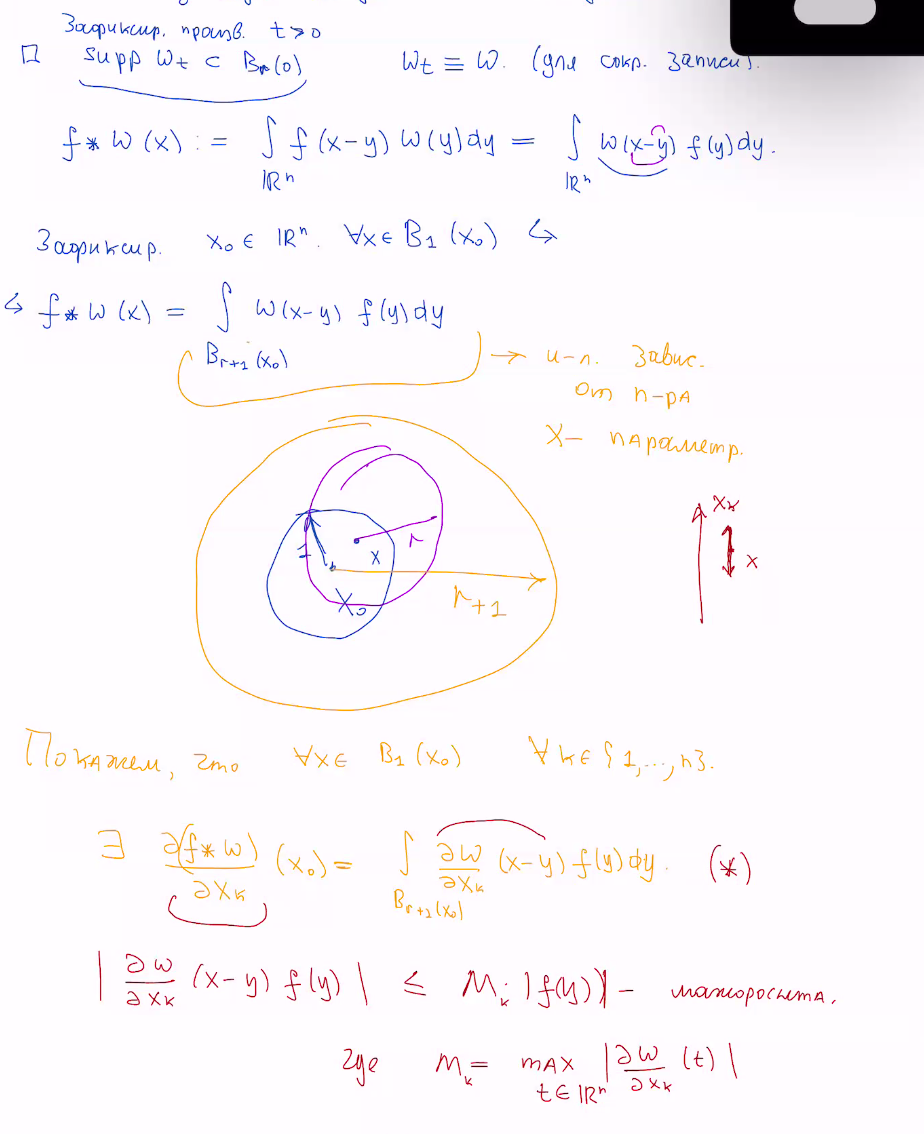 Зафиксир. произв. t>0
□ supp ω_t ⊂ B_r(0) ω_t ≡ ω. (для сокр. записи).
f * ω (x) := ∫_{ℝⁿ} f(x-y) ω(y)dy = ∫_{ℝⁿ} ω(x-y) f(y)dy.
Зафиксир. x₀ ∈ ℝⁿ. ∀x ∈ B₁(x₀) ↪
↪ f * ω (x) = ∫_{B_{r+1}(x₀)} ω(x-y) f(y)dy
→ и-л. завис.
от п-ра
x – параметр.
1 x r
x₀ r+1
x_k
x
Покажем, что ∀x ∈ B₁(x₀) ∀k ∈ {1,...,n}.
∃ ∂(f * ω)/∂x_k (x₀) = ∫_{B_{r+1}(x₀)} ∂ω/∂x_k (x-y) f(y)dy. (*)
| ∂ω/∂x_k (x-y) f(y) | ≤ M_k · |f(y)| – мажоранта.
где M_k = max_{t∈ℝⁿ} | ∂ω/∂x_k (t) |